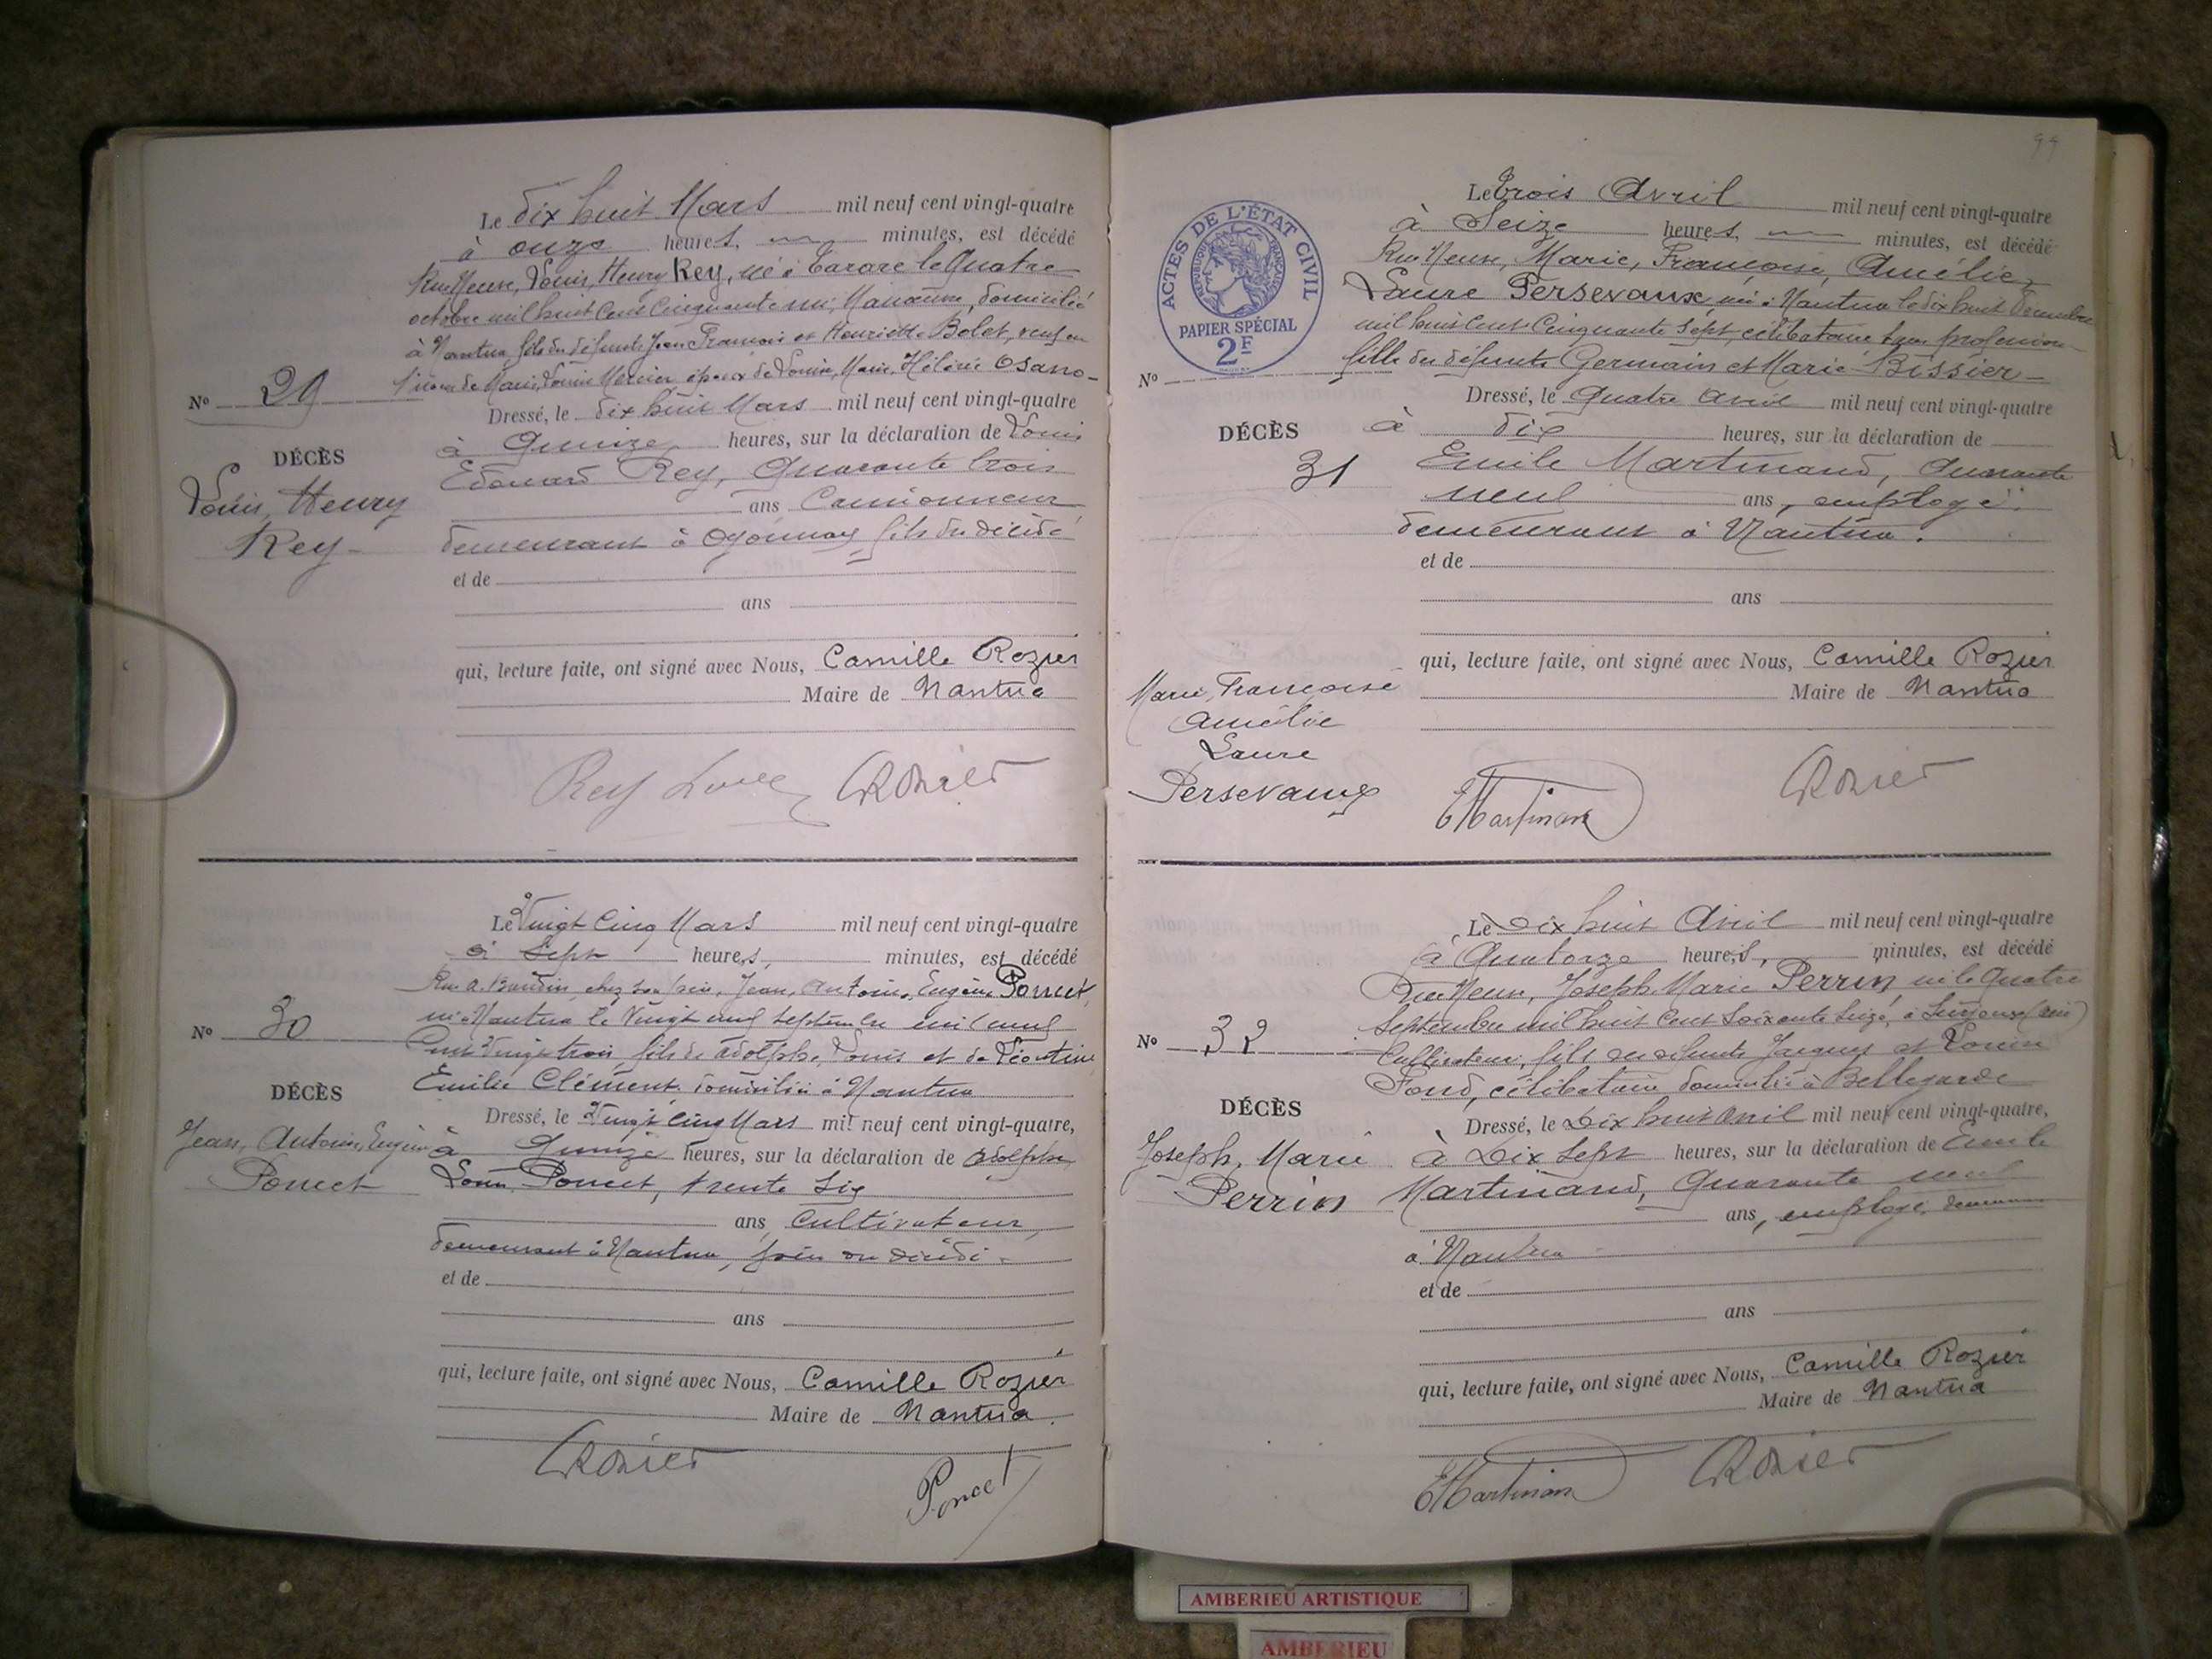 Le dix huit Mars mil neuf cent vingt-quatre
à onze heures, minutes, est décédé
Rue Neuve, Louis, Henry Rey, né à Tarare le Quatre
octobre mil huit Cent Cinquante un, domicilié
à Nantua fils du défunts Jean François et Henriette Bolet, veuf en
de Marie, Louise Mercier époux de Louise, Marie, Hélène Osano-
Nº 29
Dressé, le dix huit Mars mil neuf cent vingt-quatre
à Quinze heures, sur la déclaration de Louis
DÉCÈS
Louis, Henry
Rey
Edouard Rey, Quarante trois
ans Camionneur
demeurant à Oyonnax fils du décédé
et de
ans
qui, lecture faite, ont signé avec Nous, Camille Rozier
Maire de Nantua
Rey Louis Rozier
Le Vingt Cinq Mars mil neuf cent vingt-quatre
à Sept heures, minutes, est décédé
Rue A. Baudin, chez son père, Jean, Antoine, Eugène Poncet,
né à Nantua le Vingt neuf Septembre mil neuf
Cent Vingt trois, fils de Adolphe, Louis et de Léontine
Emilie Clément domiciliés à Nantua
Nº 30
DÉCÈS
Jean, Antoine, Eugène
Poncet
Dressé, le Vingt Cinq Mars mil neuf cent vingt-quatre,
à Quinze heures, sur la déclaration de Adolphe
Louis Poncet, trente Six
ans, Cultivateur,
demeurant à Nantua, père du décédé.
et de
ans
qui, lecture faite, ont signé avec Nous, Camille Rozier
Maire de Nantua.
Rozier Poncet
99
ACTES DE L'ÉTAT CIVIL
RÉPUBLIQUE FRANÇAISE
PAPIER SPÉCIAL
2F
Le trois Avril mil neuf cent vingt-quatre
à Seize heures, minutes, est décédé
Rue Neuve, Marie, Françoise, Amélie,
Laure Persevaux, née à Nantua le dix huit Décembre
mil huit Cent Cinquante Sept, célibataire sans profession
fille des défunts Germain et Marie Bissier
Nº
DÉCÈS
31
Dressé, le Quatre Avril mil neuf cent vingt-quatre
à dix heures, sur la déclaration de
Emile Martinand, Quarante
neuf ans, employé
demeurant à Nantua.
et de
ans
qui, lecture faite, ont signé avec Nous, Camille Rozier
Maire de Nantua
Marie, Françoise
Amélie
Laure
Persevaux
EMartinand Rozier
Le Dix huit Avril mil neuf cent vingt-quatre
à Quatorze heures, minutes, est décédé
Rue Neuve, Joseph, Marie Perrin, né le Quatre
Septembre mil huit Cent Soixante Seize, à Surjoux (Ain)
Cultivateur, fils des défunts Jacques et Louise
Fond, célibataire domicilié à Bellegarde
Nº 32
DÉCÈS
Joseph, Marie
Perrin
Dressé, le Dix huit Avril mil neuf cent vingt-quatre,
à Dix Sept heures, sur la déclaration de Emile
Martinand, Quarante neuf
ans, employé, demeurant
à Nantua
et de
ans
qui, lecture faite, ont signé avec Nous, Camille Rozier
Maire de Nantua
EMartinand Rozier
AMBERIEU ARTISTIQUE
AMBERIEU